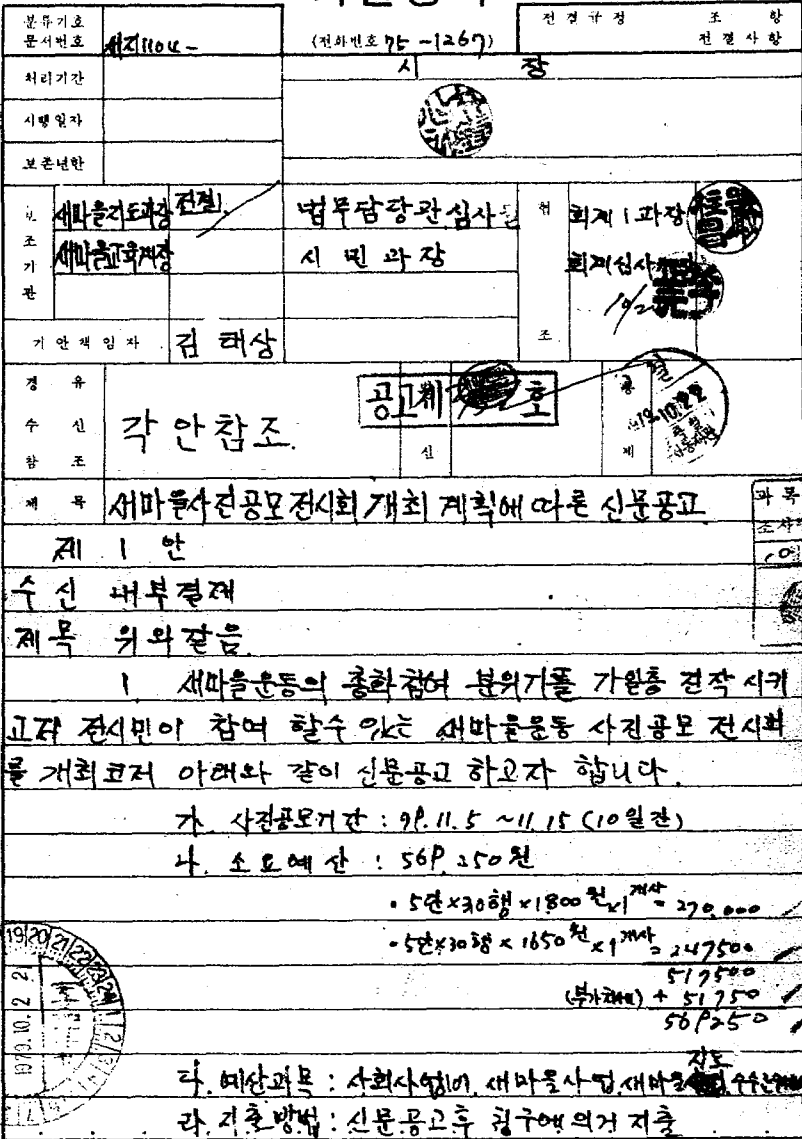 분류기호
문서번호 새지1104-
(전화번호 75-1267)
전결규정 조 항
전결사항
처리기간
시 장
시행일자
보존년한
보조기관
새마을지도과장 전결
법무담당관 심사필
협조
회계1과장
새마을교육계장
시민과장
회계심사
10/2
기안책임자 김태상
경유
수신
참조
각안참조
공고제 호
발신
통제
79.10.22
제목 새마을사진공모전시회 개최 계획에 따른 신문공고
과목
조사
제 1 안
수신 내부결재
제목 위와같음
1 새마을운동의 총화참여 분위기를 가일층 진작 시키
고저 전시민이 참여 할수 있는 새마을운동 사진공모 전시회
를 개최코저 아래와 같이 신문공고 하고자 합니다.
가. 사진공모기간 : 79.11.5 ~11.15 (10일간)
나. 소요예산 : 569.250원
·5단×30행×1800원×1개사= 270,000
·5단×30행×1650원×1개사= 247500
517500
(부가세) + 51750
569250
1979.10.22
다. 예산과목 : 사회사업비, 새마을사업, 새마을지도
라. 지출방법 : 신문공고후 청구에 의거 지출